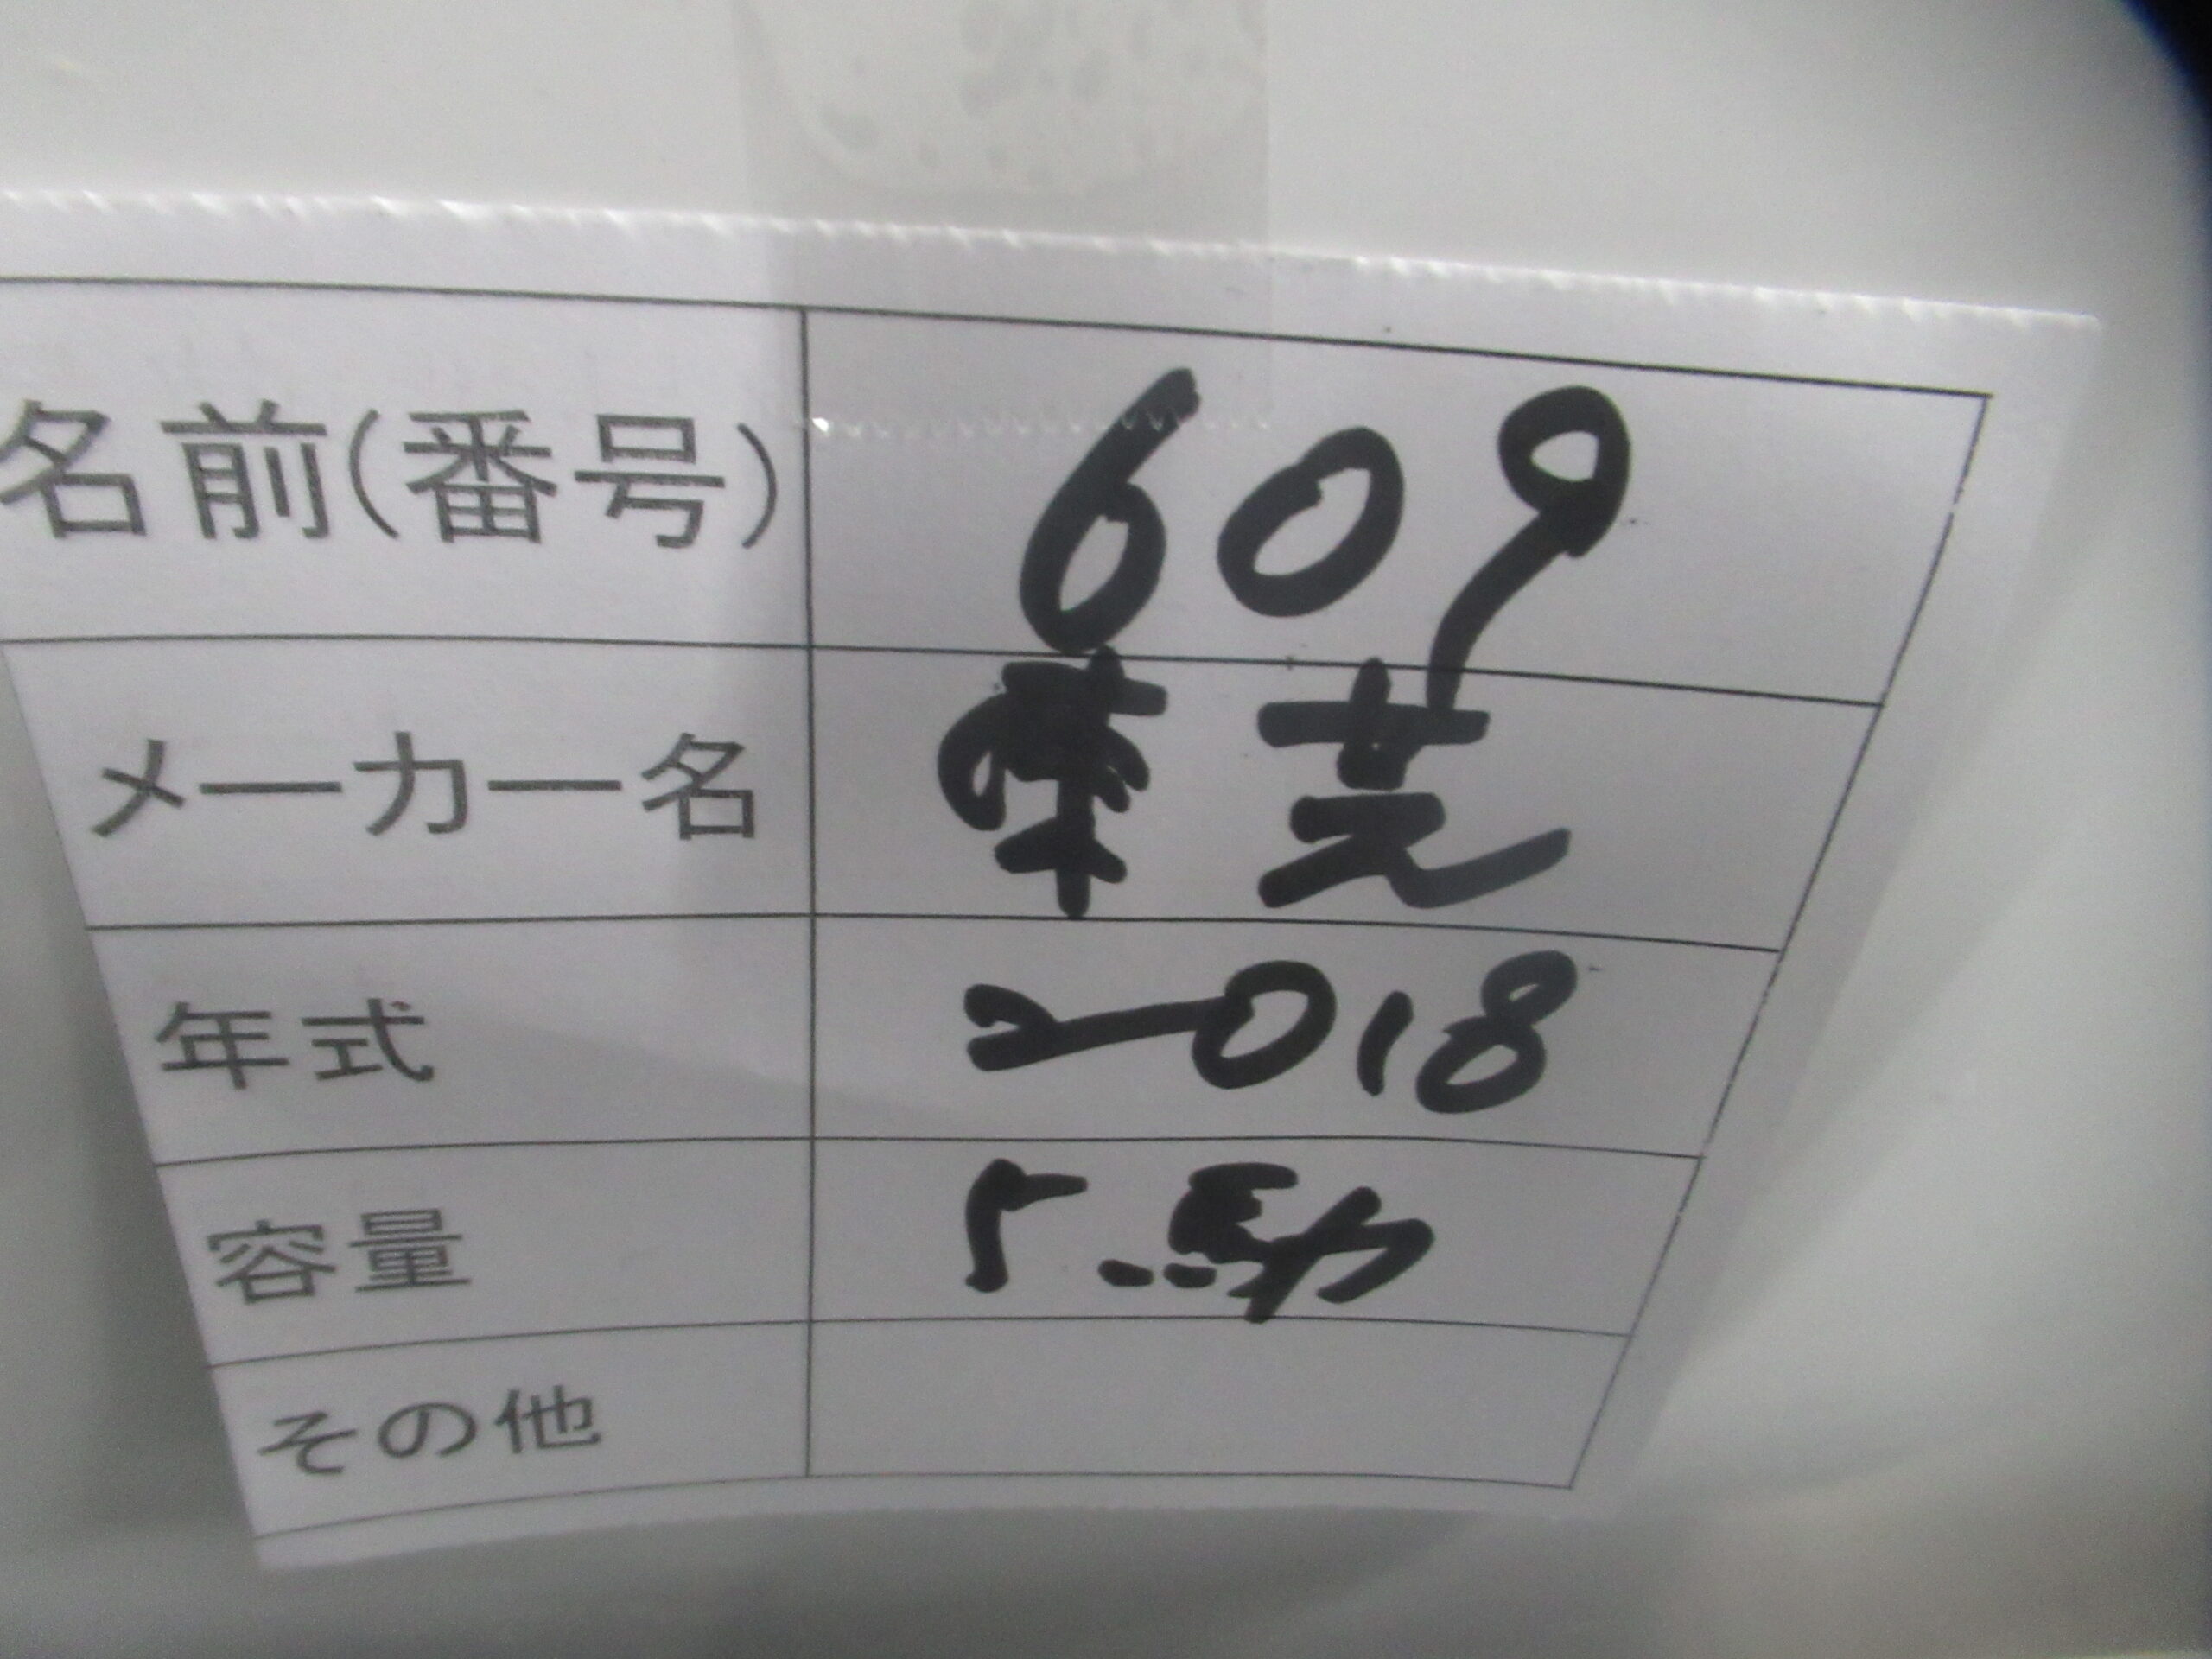 名前(番号) 609
メーカー名 東芝
年式 2018
容量 5
その他